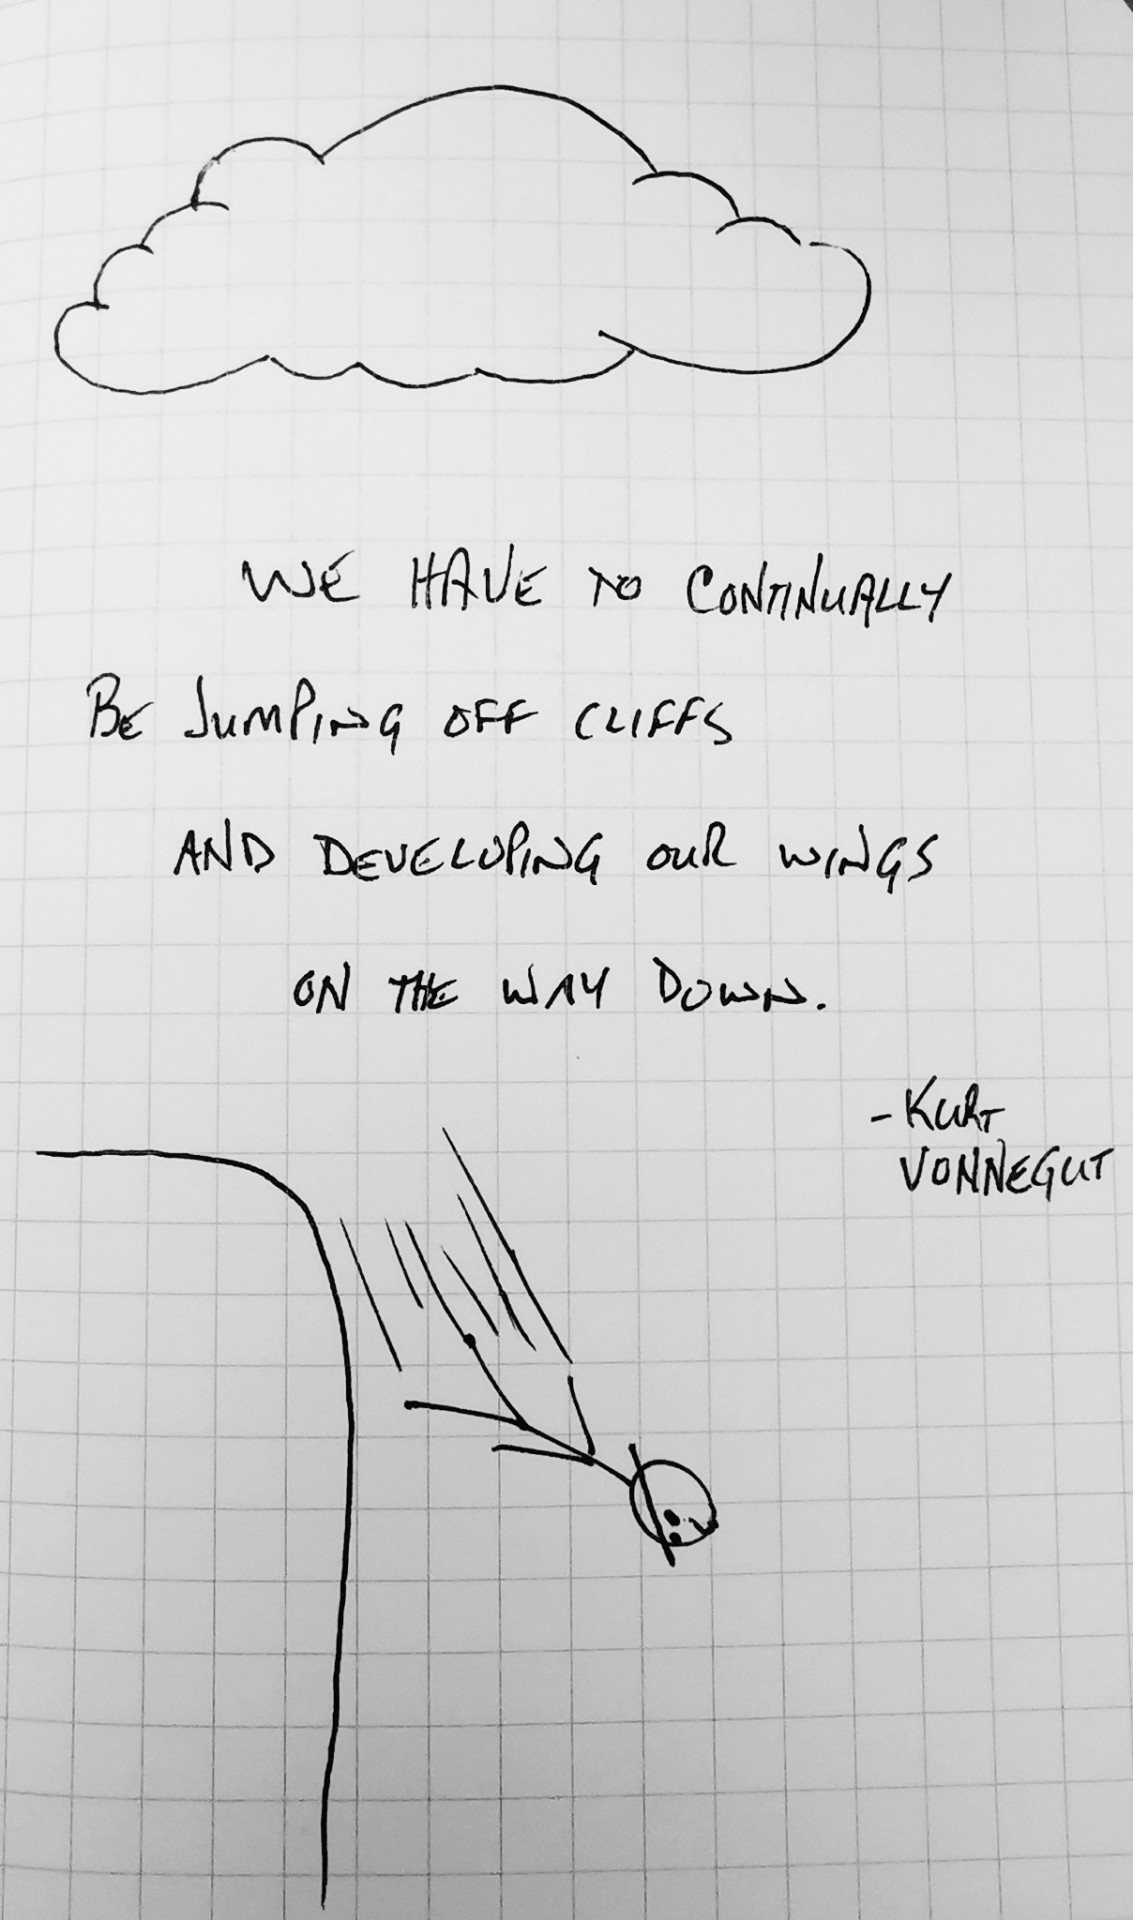 WE HAVE TO CONTINUALLY
BE JUMPING OFF CLIFFS
AND DEVELOPING OUR WINGS
ON THE WAY DOWN.
- KURT
VONNEGUT